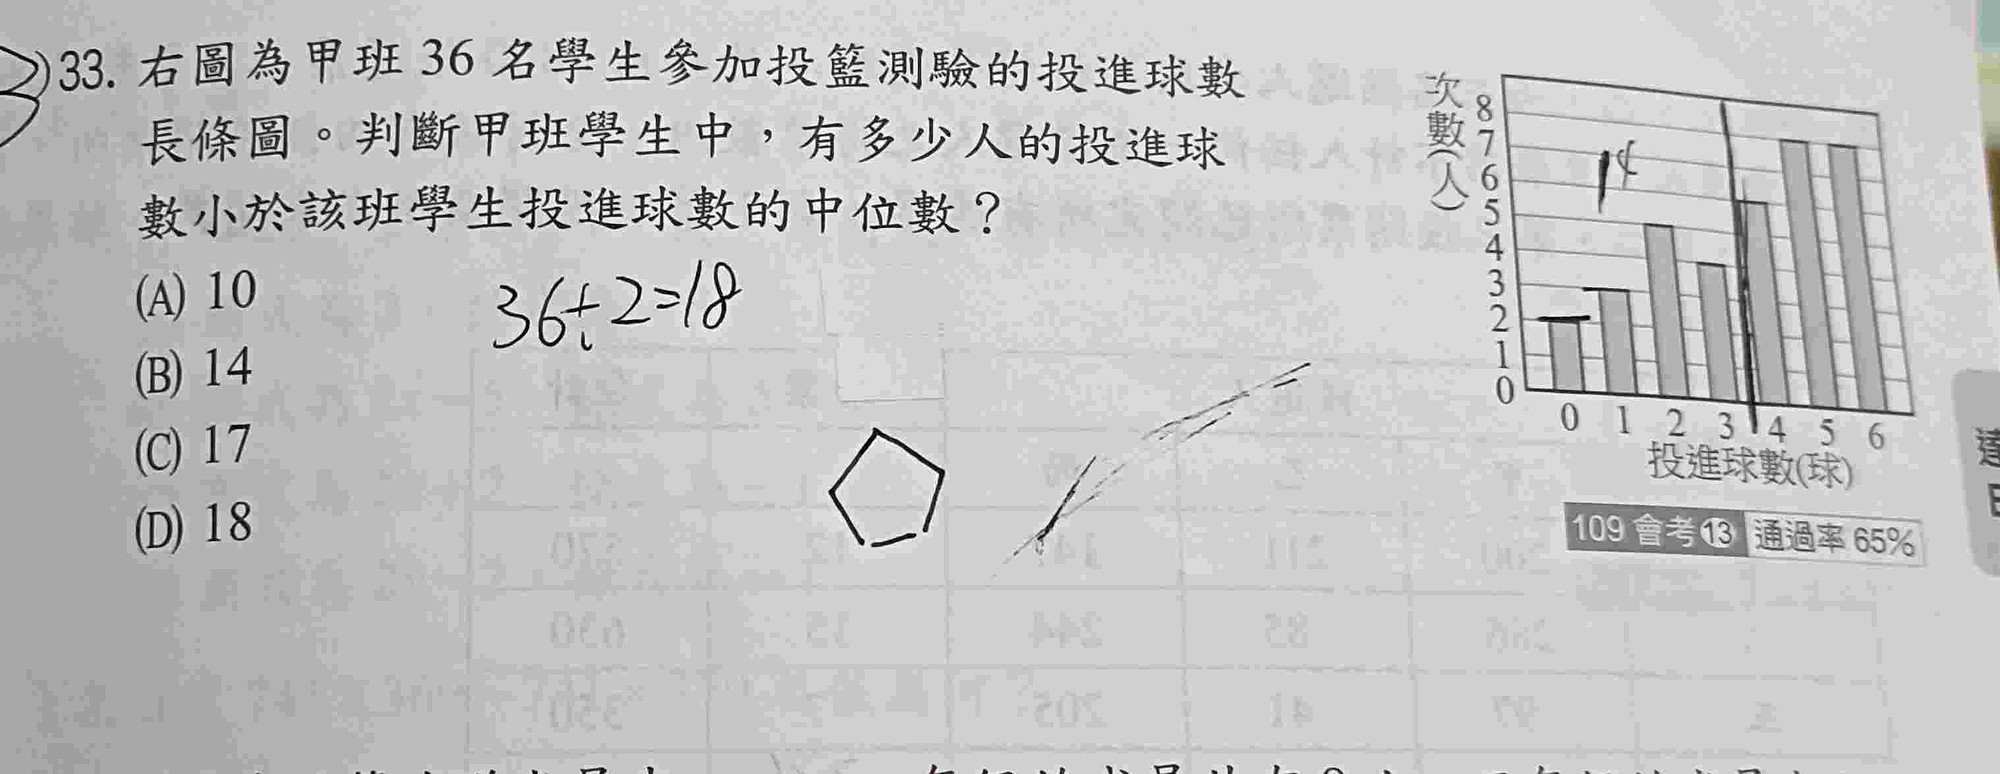 33. 右圖為甲班 36 名學生參加投籃測驗的投進球數
長條圖。判斷甲班學生中，有多少人的投進球
數小於該班學生投進球數的中位數？
(A) 10
(B) 14
(C) 17
(D) 18
36÷2=18
次數(人)
8
7
6
5
4
3
2
1
0
14
0 1 2 3 4 5 6
投進球數(球)
109 會考⓭ 通過率 65%